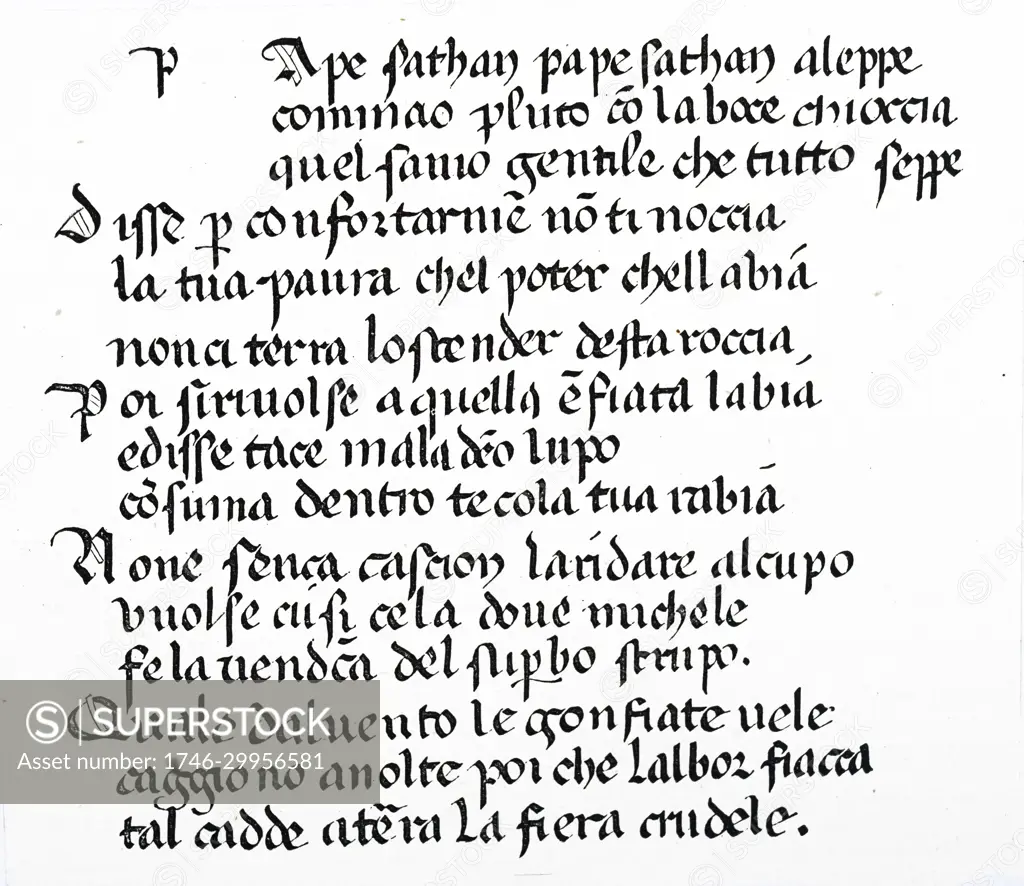 P Ape sathan pape sathan aleppe
cominao pluto cō la boce chioccia
quel sauio gentile che tutto seppe
Disse p̱ confortarmē nō ti noccia
la tua paura chel poter chellabiā
non ci terra lo scender desta roccia
Poi si riuolse a quella ēfiata labia
e disse tace maladc̄o lupo
cōsuma dentro te cola tua rabiā
None senca cascion landare alcupo
vuolse cusi cela doue michele
fe la uendc̄a del sup̱bo strupo.
Quale dal uento le gonfiate uele
caggiono auolte poi che lalbor fiacca
tal cadde atēra la fiera crudele.
SUPERSTOCK
Asset number: 1746-29956581